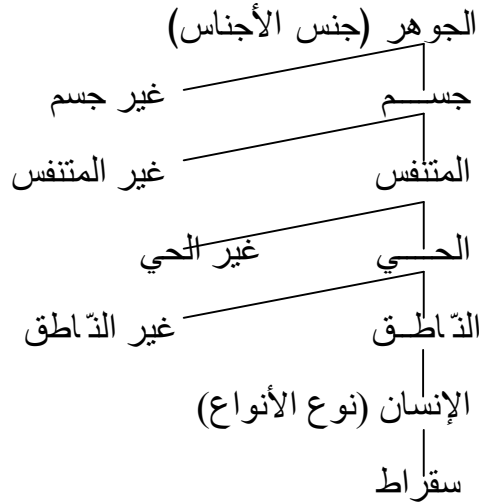 الجوهر (جنس الأجناس)
جســـم غير جسم
المتنفس غير المتنفس
الحـــي غير الحي
النّاطــق غير النّاطق
الإنسان (نوع الأنواع)
سقراط